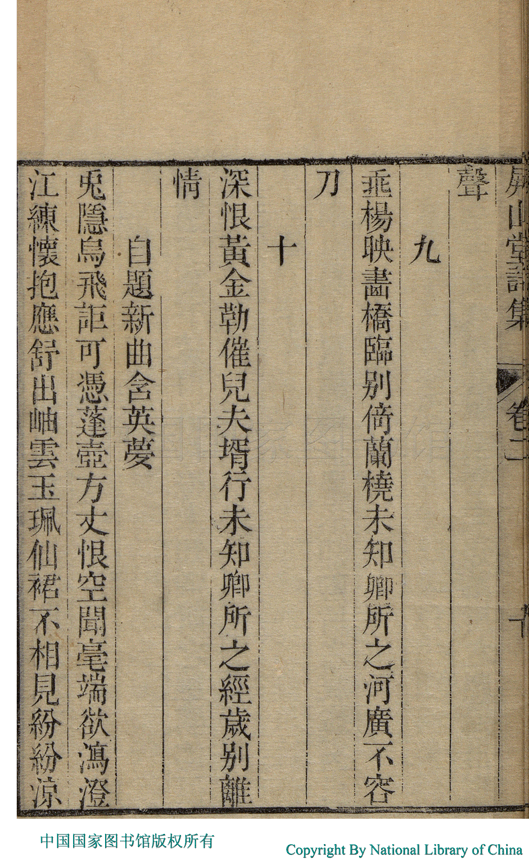 屏山堂詩集 卷二 十
聲
九
垂楊映畵橋臨别倚蘭橈未知卿所之河廣不容
刀
十
深恨黃金勒催兒夫壻行未知卿所之經歲别離
情
自題新曲含英夢
兎隱烏飛詎可憑蓬壺方丈恨空聞毫端欲瀉澄
江練懷抱應舒出岫雲玉珮仙裙不相見紛紛涼
中国国家图书馆版权所有
Copyright By National Library of China